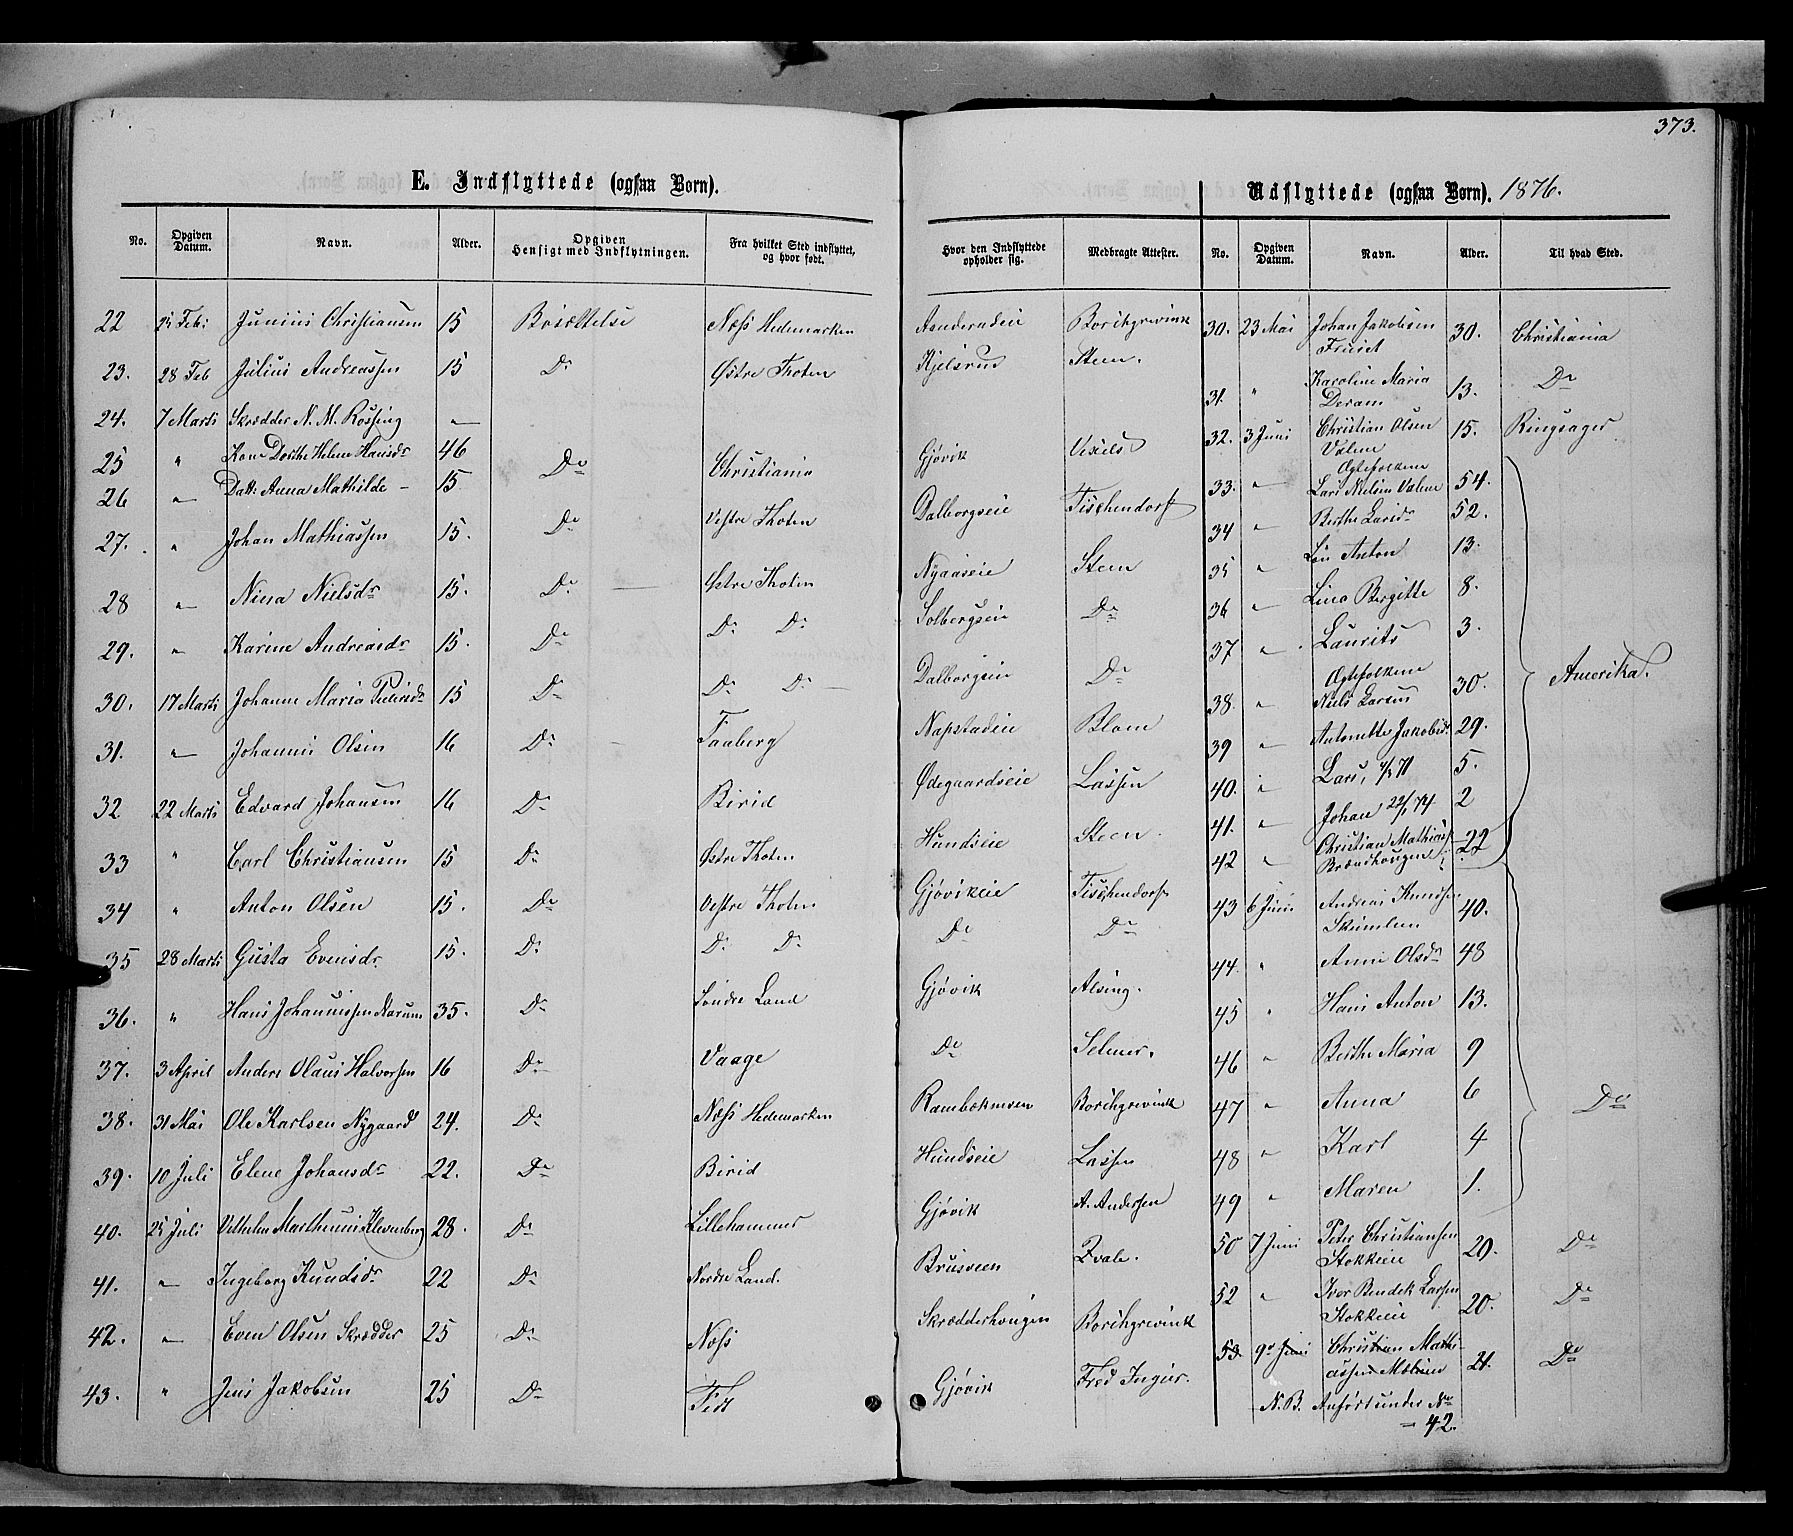 373.
E. Indflyttede (ogsaa Born).
No. Opgiven Datum. Navn. Alder. Opgiven Hensigt med Indflytningen. Fra hvilket Sted indflyttet, og hvor født. Hvor den Indflyttede opholder sig. Medbragte Attester.
22 Feb: Junius Christiansen 15 Bosættelse Næss Hedemarken Borchgrevink
23. 28 Feb Julius Andreassen 15 Do Østre Thoten Kjelsrud Steen.
24. 7 Marts Skrædder N. M. Rossing —
25 " Kone Dorthe Helene Hansdr 46 Do Christiania Gjøvik
26 " Datt: Anna Mathilde – 15
27. " Johan Mathiassen 15. Do Vestre Thoten Dalborgseie Tischendorf
28 " Nina Nielsdr 15. Do — Østre Thoten Nyaaseie Steen
29. " Karine Andreasdr 15. Do Do Do Solbergseie Do
30. 17 Marts Johanne Maria Pedersdr 15 Do Do Do — Dalborgseie Do
31. " Johannes Olsen 16 Do Faaberg Napstadeie Blom
32 22 Marts Edvard Johansen 16 Do Birid Ødegaardseie Lassen
33 " Carl Christiansen 15 Do Østre Thoten Hundseie Steen.
34 " Anton Olsen 15. Do Vestre Thoten Gjøvikeie Tischendorf
35 28 Marts Gusta Evensdr. 15. Do Do Do Do Do
36. " Hans Johannissen 35. Do Søndre Land Gjøvik Alsing.
37. 3 April Anders Olaus Halvorsen 16 Do Vaage Do Selmer.
38. 31 Mai Ole Karlsen Nygaard 24. Do Næss Hedemarken Borchgrevink
39. 10 Juli Elene Johansdr 22. Do Birid Hundseie Lassen
40. 25 Juli Vilhelm Marthinius 28. Do Lillehammer Gjøvik A. Andersen
41. " Ingeborg Knudsdr 22 Do Nordre Land. Brusveen
42. " Even Olsen Skrædder 25 Do Næss Skrædderhougen Borchgrevink
43. " Jens Jakobsen 25 Do Gjøvik
Udflyttede (ogsaa Børn). 1876.
No. Opgiven Datum. Navn. Alder. Til hvad Sted.
30. 23 Mai Johan Jakobsen 30. Christiania
31. " Karoline Maria 13. Do
32. 3 Juni Christian Olsen Valene 15. Ringsager
Ægtefolkene
33. " Lars Nielsen Valene 54.
34 " Berthe Larsdr 52.
35 " Anton 13.
36 " Lina Birgitte 8.
37 " Laurits 3. Amerika.
Ægtefolkene
38. " Niels Larsen 30.
39 " Antonette Jakobsdr 29.
40. " Lars, 5.
41. " Johan 22/1 74 2
42 " Christian Mathiass: Brændhougen 22
43 6 Juni Andreas Knudsen Skumlien 40.
44. " Anne Olsdr 48
45 " Hans Anton 13.
46 " Berthe Maria 9
47 " Anna 6 Do
48 " Karl 4
49 " Maren 1.
50 7 Juni Peter Christiansen Stokkeie 20. Do
52 " Iver Bendik Larsen Stokkeie 20. Do
53. 9de Juni Christian Mathiassen 21. Do
N.B. Anført under No
— 42.